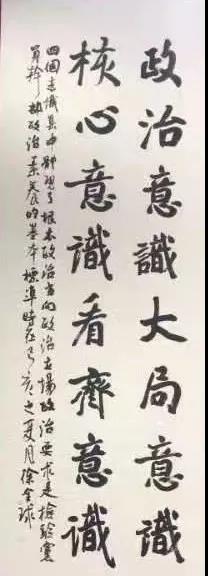 政治意識大局意識
核心意識看齊意識
四個意識集中體現了根本政治方向政治立場政治要求是檢驗黨
員幹部政治素養的基本標準時在己亥之夏月徐全球